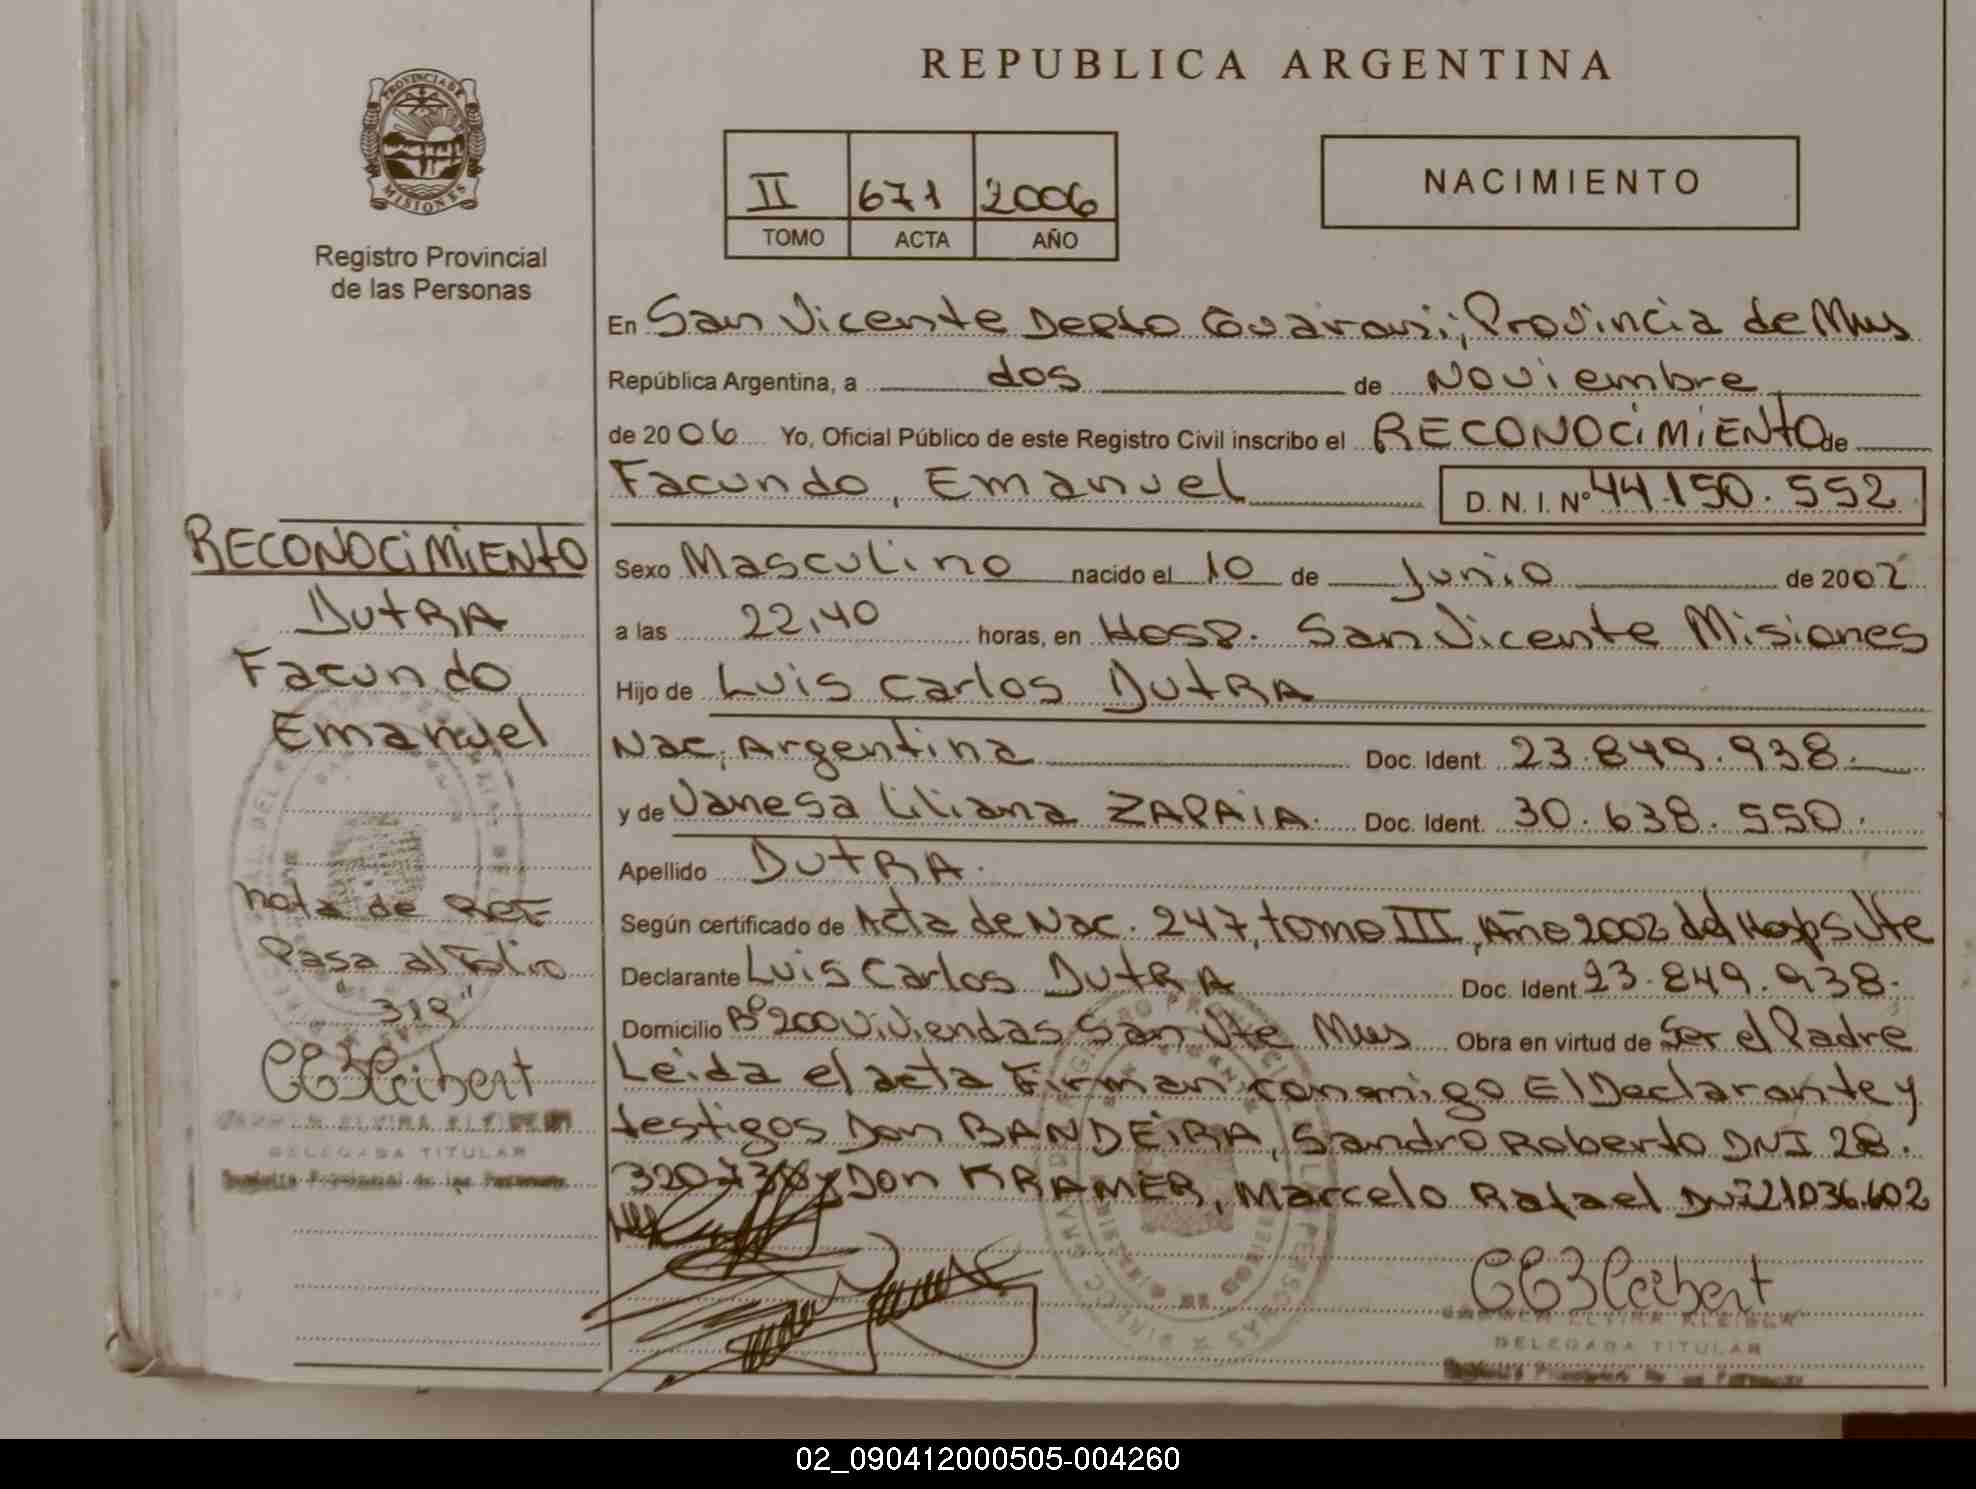 REPUBLICA ARGENTINA
PROVINCIA DE
MISIONES
Registro Provincial
de las Personas
II 671 2006
TOMO ACTA AÑO
NACIMIENTO
En San Vicente Depto Guarani; Provincia de Mnes
República Argentina, a dos de Noviembre
de 2006 Yo, Oficial Público de este Registro Civil inscribo el RECONOCiMiENtO de
Facundo, Emanuel D. N. I. Nº 44.150.552
Sexo Masculino nacido el 10 de Junio de 2002
a las 22,40 horas, en Hosp. San Vicente Misiones
Hijo de Luis Carlos DutRA
Nac; Argentina Doc. Ident. 23.849.938.
y de Vanesa Liliana ZAPAIA. Doc. Ident. 30.638.550.
Apellido DutRA.
Según certificado de Acta de Nac. 247, tomo III, Año 2002 del Hosp S Vte
Declarante Luis Carlos DutRA Doc. Ident. 23.849.938.
Domicilio Bº 200 Viviendas San Vte Mnes Obra en virtud de Ser el Padre
Leida el acta Firman conmigo El Declarante y
testigos Don BANDEiRA, Sandro Roberto DNI 28.
y Don KRAMER, Marcelo Rafael DNI 21.036.602
CEBleibert
DELEGADA TITULAR
RECONOCiMiENtO
DutRA
Facundo
Emanuel
nota de REF
Pasa al Folio
"319"
CEBleibert
DELEGADA TITULAR
Registro Provincial de las Personas
02_090412000505-004260